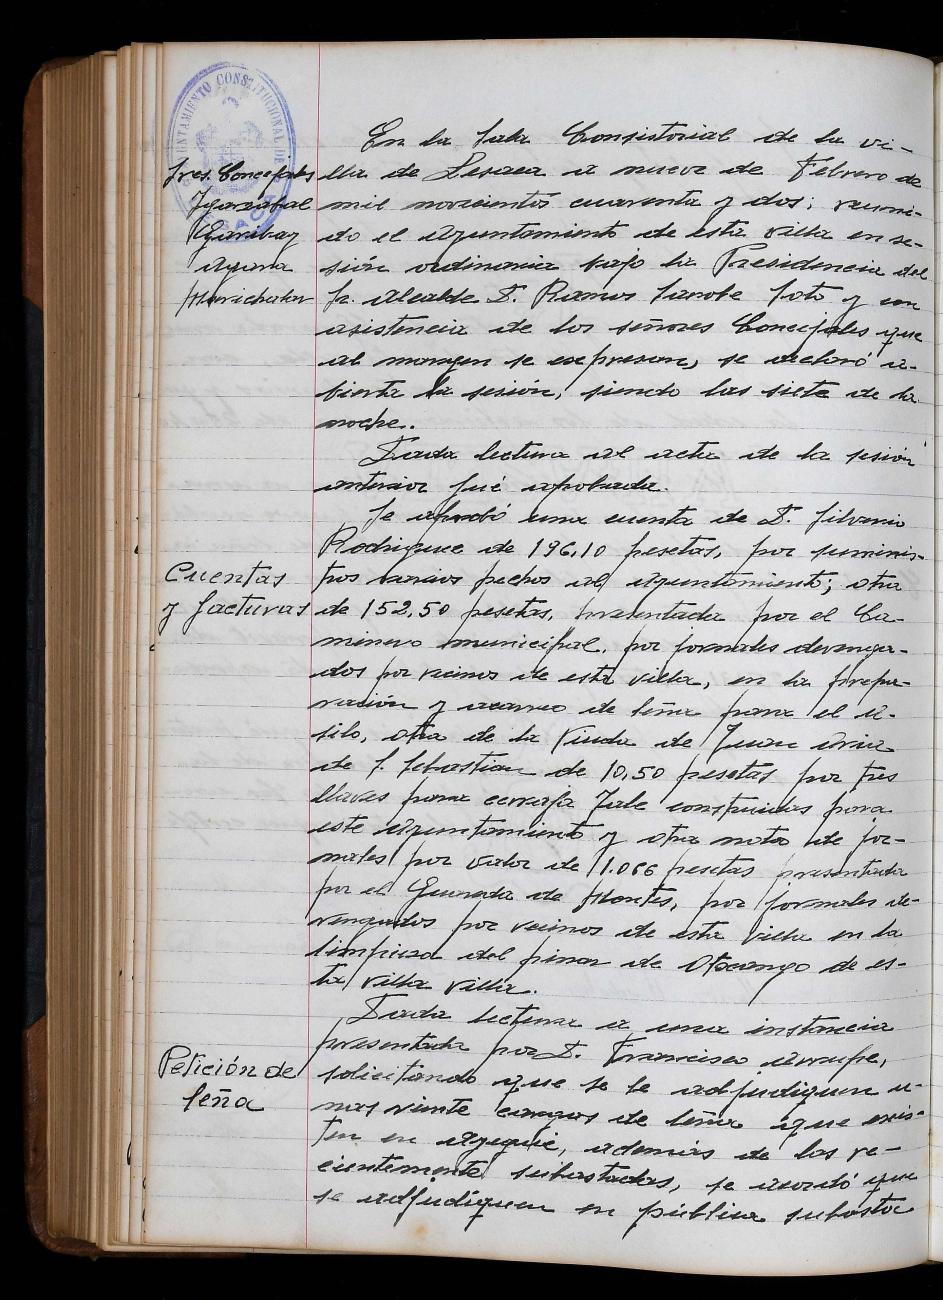 AYUNTAMIENTO CONSTITUCIONAL DE
LESACA
Sres. Concejales
Ygarzabal
Garibay
Marichalar
En la Sala Consistorial de la vi-
lla de Lesaca a nueve de Febrero de
mil novecientos cuarenta y dos; reuni-
do el Ayuntamiento de esta villa en se-
sión ordinaria bajo la Presidencia del
Sr. Alcalde D. Ramos Sarobe Soto y con
asistencia de los señores Concejales que
al margen se expresan, se declaró a-
bierta la sesión, siendo las siete de la
noche.
Dada lectura al acta de la sesión
anterior fué aprobada.
Cuentas
y facturas
Se aprobó una cuenta de D. Silverio
Rodriguez de 196,10 pesetas, por suminis-
tros varios hechos al Ayuntamiento; otra
de 152,50 pesetas, presentada por el Ca-
minero municipal, por jornales devenga-
dos por vecinos de esta villa, en la prepa-
ración y acarreo de leña para el a-
silo, otra de la Viuda de Juan
de S. Sebastian de 10,50 pesetas por tres
llaves para cerraja Yale construidas para
este Ayuntamiento y otra nota de jor-
nales por valor de 1.066 pesetas presentada
por el Guarda de Montes, por jornales de-
vengados por vecinos de esta villa en la
limpieza del pinar de Otsango de es-
ta villa villa.
Petición de
leña
Dada lectura a una instancia
presentada por D. Francisco Arrupe,
solicitando que se le adjudiquen u-
nas veinte cargas de leña que exis-
ten en, además de las re-
cientemente subastadas, se acordó que
se adjudiquen en pública subasta